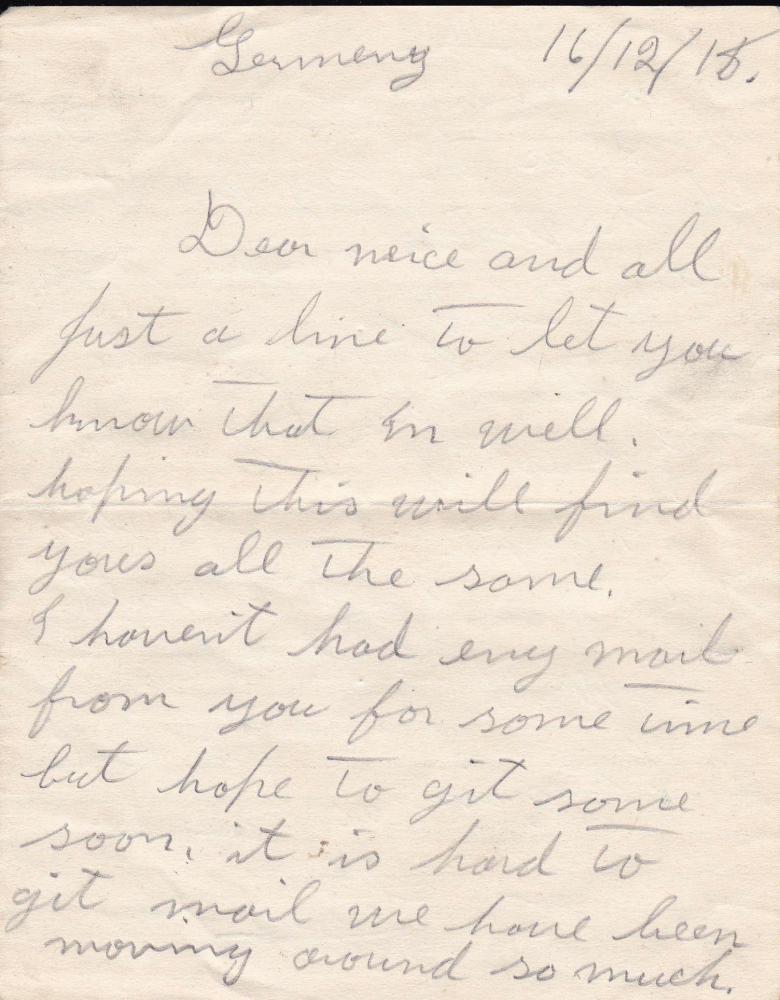 Germeny 16/12/18.
Dear neice and all
Just a line to let you
know that Im well.
hoping this will find
yous all the same.
I havent had eny mail
from you for some time
but hope to git some
soon, it is hard to
git mail we have been
moving around so much.